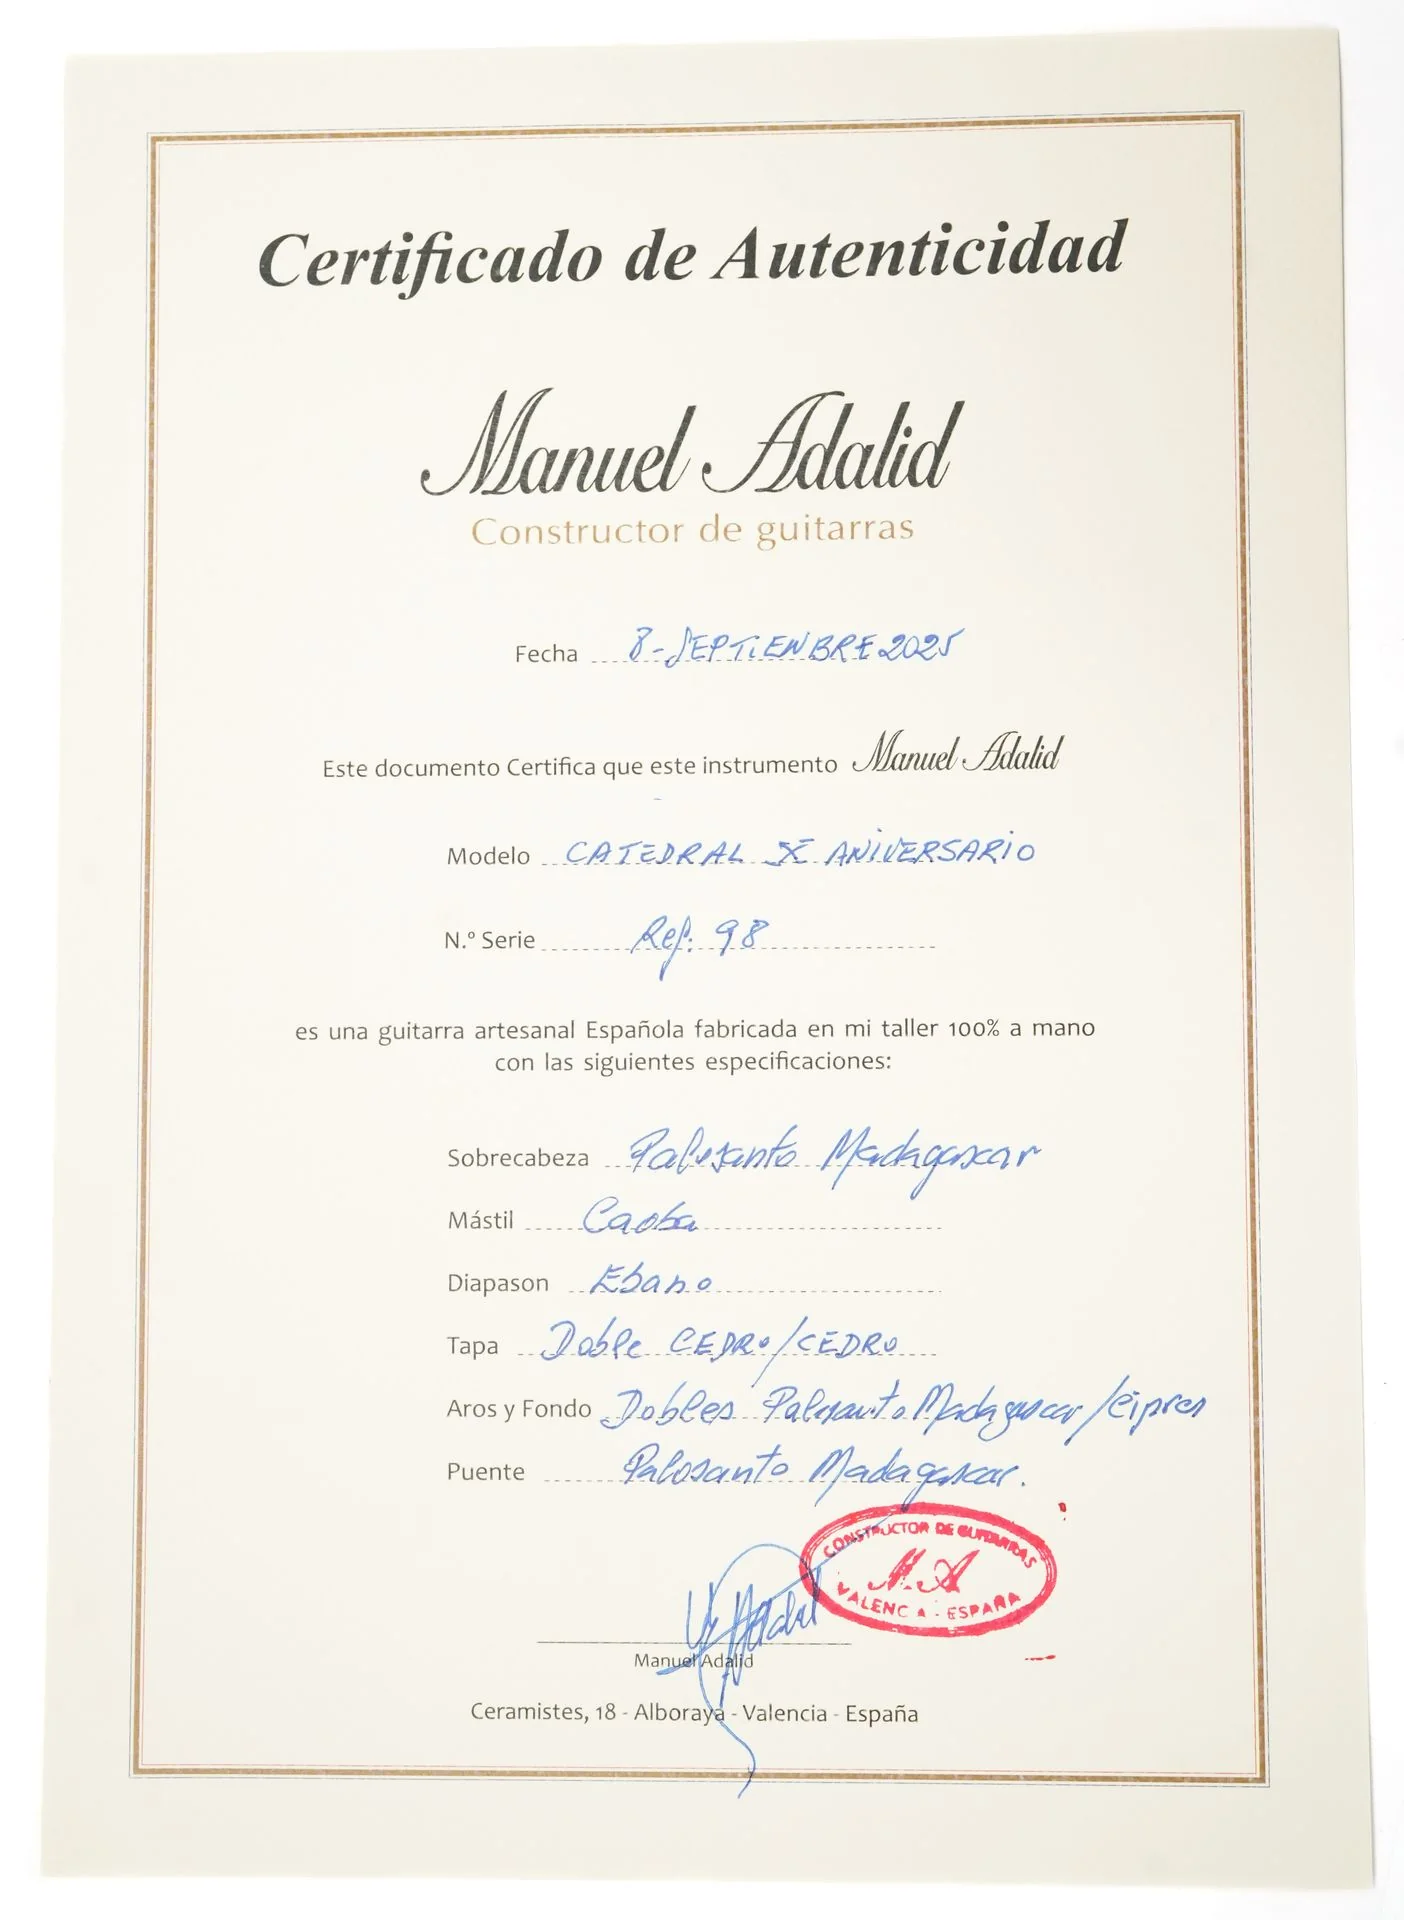 Certificado de Autenticidad
Manuel Adalid
Constructor de guitarras
Fecha 8-SEPTIENBRE 2025
Este documento Certifica que este instrumento Manuel Adalid
Modelo CATEDRAL X ANIVERSARIO
N.º Serie Ref: 98
es una guitarra artesanal Española fabricada en mi taller 100% a mano
con las siguientes especificaciones:
Sobrecabeza Palosanto Madagascar
Mástil Caoba
Diapason Ebano
Tapa Doble CEDRO/CEDRO
Aros y Fondo Dobles Palosanto Madagascar/Cipres
Puente Palosanto Madagascar.
CONSTRUCTOR DE GUITARRAS
M.A
VALENCIA - ESPAÑA
Manuel Adalid
Ceramistes, 18 - Alboraya - Valencia - España